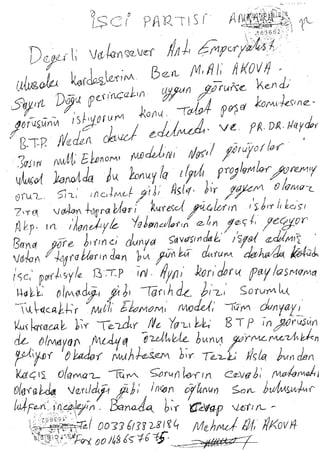 İŞCİ PARTİSİ ANKARA
Değerli Vatansever Anti Emperyalist
ulusalcı kardeşlerim. Ben M. Ali AKOVA.
Sayın Doğu perinçekin uygun görürse kendi
görüşünü istiyorum konu. Talat paşa komitesine-
B.T.P Neden davet edilmedi. ve PR.DR. Haydar
Basın milli Ekonomi modelini Nasıl görüyorlar
ulusal kanalda bu konuyla ilgili proglamlar göremiy
oruz. Sizi incitmek gibi Asla bir gayem olamaz
Zira vatan toprakları küresel güçlerin işbirlikcisi
Akp.ın ihanetiyle Yabancıların elin geçti geçiyor
Bana göre birinci dünya Savasındaki işgal edilmiş
vatan topraklarından bu günkü durum dahada kötüdür
işci partisiyle B.T.P in. Ayni koridoru paylaşmama
Hakkı olmadığı gibi Tarihde bizi Sorumlu
Tutacaktır milli Ekonomi modeli Tüm dünyayı
Kurtaracak bir Tezdir Ne Yazıkki BTP in görüşün
de olmayan medya özellikle bunu görmemezlikten
geliyor Okadar muhtesem bir Tezki Asla bundan
Kaçış olamaz Tüm Sorunların Cevabi matamati
olarakda verildiği gibi insan oğlunun Son buluşutur
Lütfen inceleyin. Banada bir Cevap verin.
Tel 0033613828184 Mehmet Ali AKOVA
Fax 00148657675